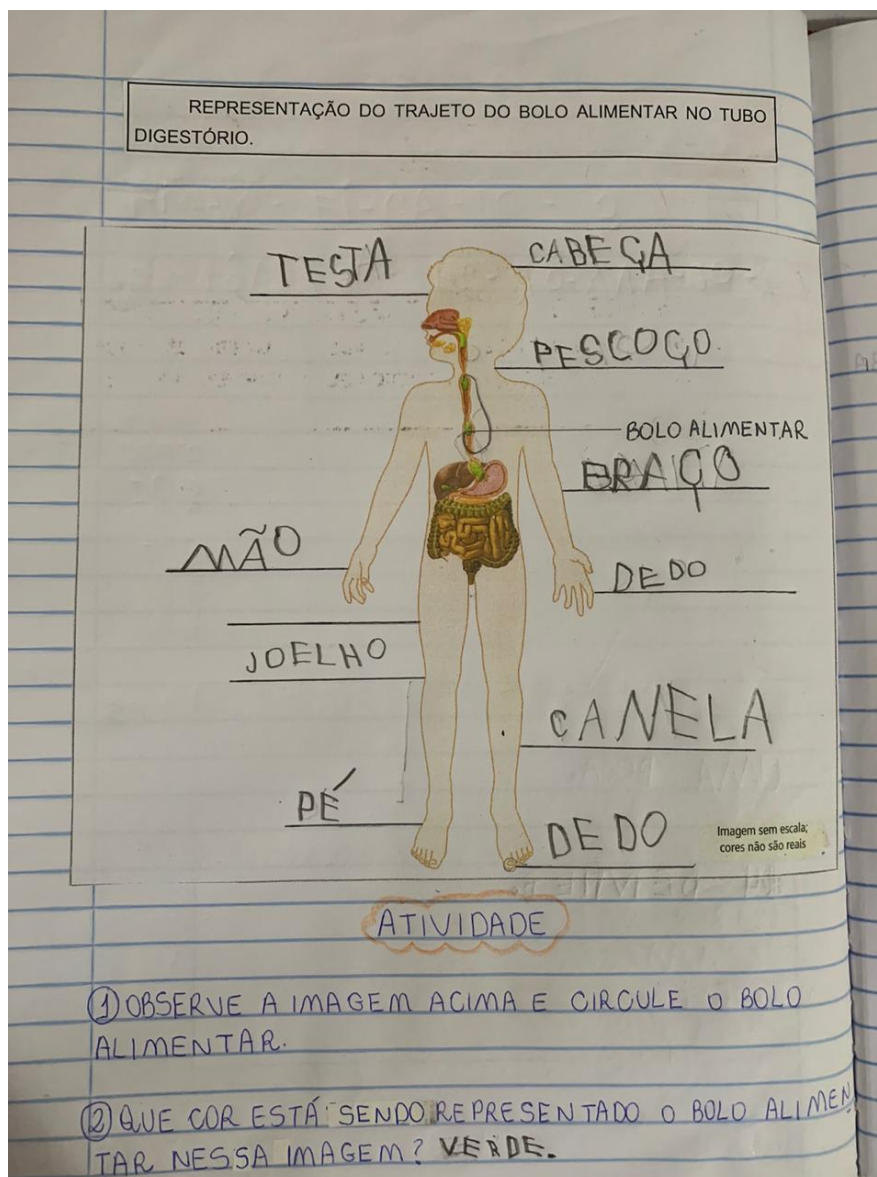 REPRESENTAÇÃO DO TRAJETO DO BOLO ALIMENTAR NO TUBO
DIGESTÓRIO.
TESTA
CABEÇA
PESCOÇO
BOLO ALIMENTAR
BRAÇO
MÃO
DEDO
JOELHO
ÇANELA
PÉ
DEDO
Imagem sem escala;
cores não são reais
ATIVIDADE
1 OBSERVE A IMAGEM ACIMA E CIRCULE O BOLO
ALIMENTAR.
2 QUE COR ESTÁ SENDO REPRESENTADO O BOLO ALIMEN
TAR NESSA IMAGEM? VERDE.